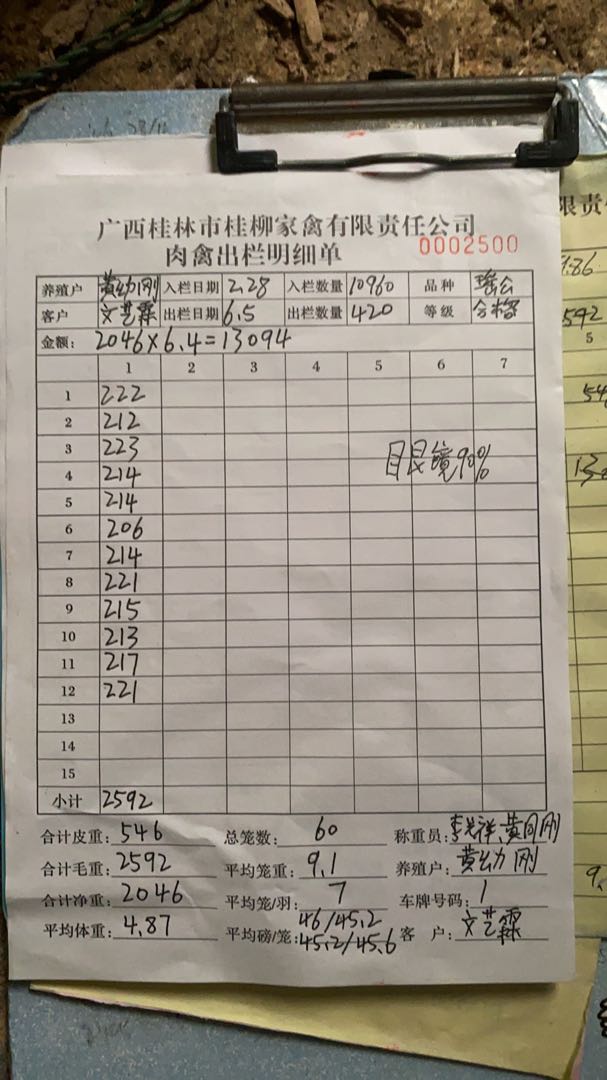 广西桂林市桂柳家禽有限责任公司
肉禽出栏明细单 0002500
养殖户 黄幼刚 入栏日期 2.28 入栏数量 10960 品种 瑶公
客户 文艺霖 出栏日期 6.5 出栏数量 420 等级 合格
金额: 2046×6.4=13094
1 2 3 4 5 6 7
1 222
2 212
3 223
4 214 目眼镜90%
5 214
6 206
7 214
8 221
9 215
10 213
11 217
12 221
13
14
15
小计 2592
合计皮重: 546 总笼数: 60 称重员:
合计毛重: 2592 平均笼重: 9.1 养殖户: 黄幼刚
合计净重: 2046 平均笼/羽: 7 车牌号码: 1
平均体重: 4.87 平均磅/笼: 46/45.2 45.2/45.6 客 户: 文艺霖
限责
592
5